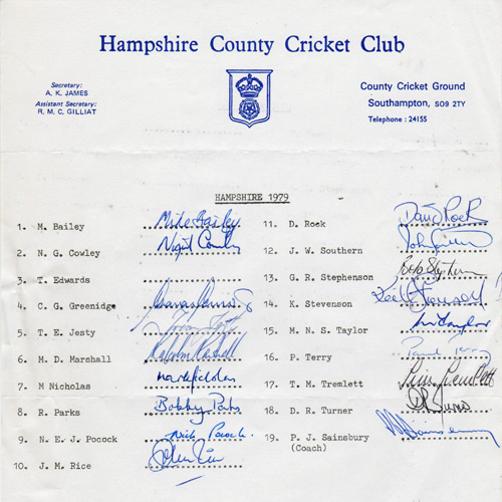 Hampshire County Cricket Club
Secretary:
A. K. JAMES
Assistant Secretary:
R. M. C. GILLIAT
County Cricket Ground
Southampton, SO9 2TY
Telephone: 24155
HAMPSHIRE 1979
1. M. Bailey Mike Bailey
2. N. G. Cowley Nigel Cowley
3. T. Edwards
4. C. G. Greenidge
5. T. E. Jesty
6. M. D. Marshall Malcolm Marshall
7. M Nicholas Mark Nicholas
8. R. Parks Bobby Parks
9. N. E. J. Pocock Nick Pocock
10. J. M. Rice John Rice
11. D. Rock David Rock
12. J. W. Southern John Southern
13. G. R. Stephenson Bob Stephenson
14. K. Stevenson Keith Stevenson
15. M. N. S. Taylor
16. P. Terry Paul Terry
17. T. M. Tremlett Tim Tremlett
18. D. R. Turner
19. P. J. Sainsbury
(Coach)